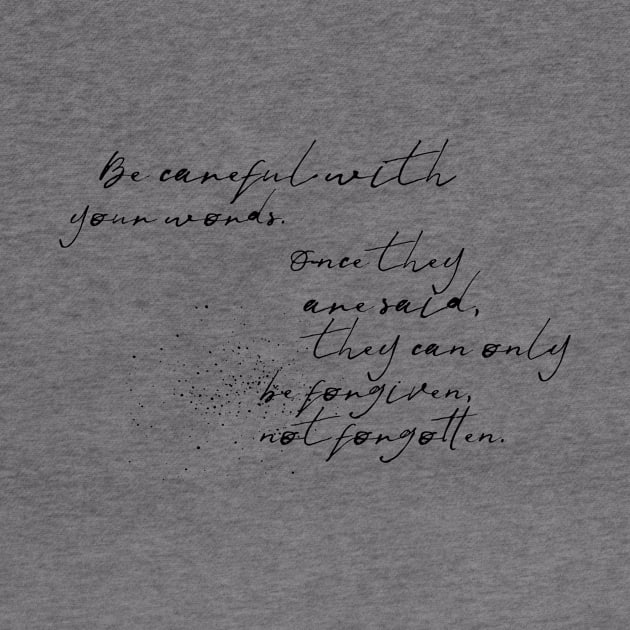 Be careful with
your words.
Once they
are said,
they can only
be forgiven,
not forgotten.